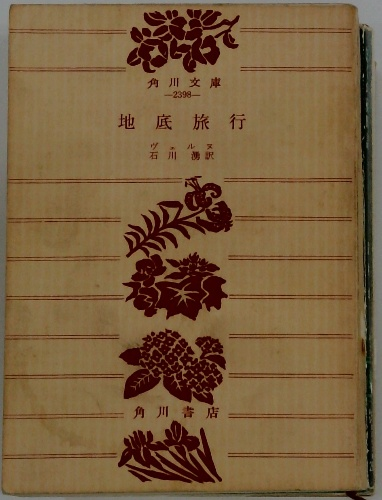 角川文庫
—2398—
地底旅行
ヴェルヌ
石川湧訳
角川書店